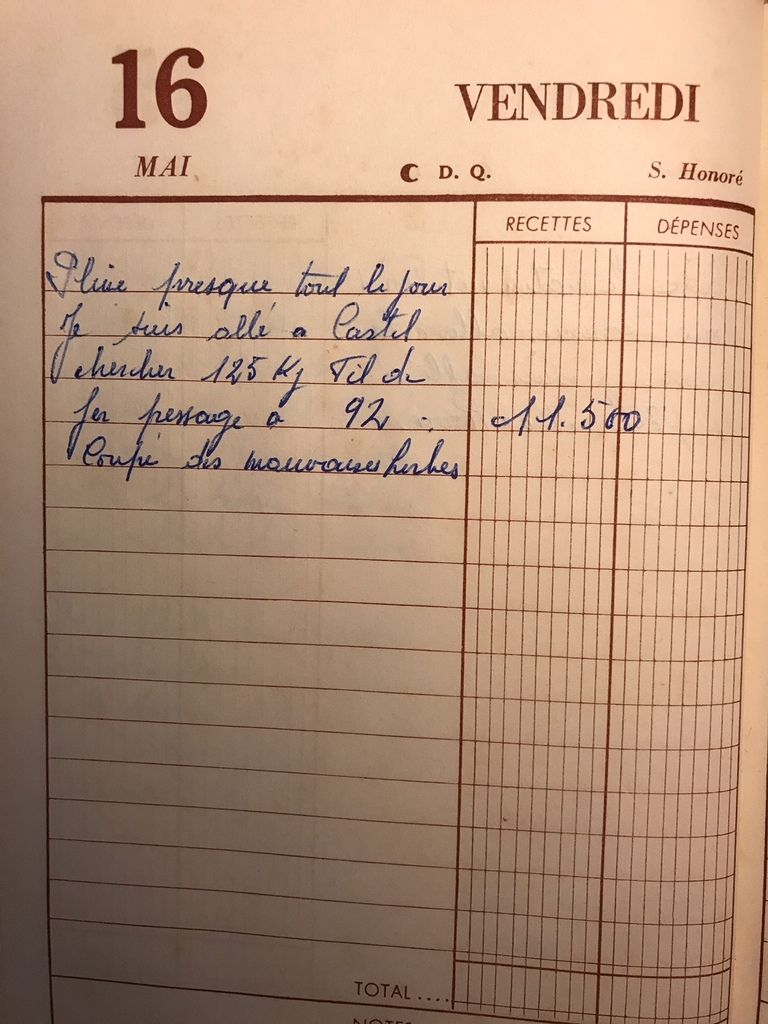 16
VENDREDI
MAI
D. Q.
S. Honoré
RECETTES
DÉPENSES
Pluie presque tout le jour
Je suis allé a Castel
chercher 125 Kg Fil de
fer pressage a 92 = 11.500
Coupé des mauvaises herbes
TOTAL ....
NOTES